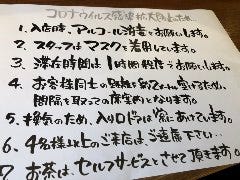 コロナウイルス感染拡大防止のため、
1、入店時、アルコール消毒をお願いします。
2、スタッフはマスクを着用しています。
3、滞在時間は1時間程度でお願いします。
4、お客様同士の距離を空けるため、
間隔を取っての席案内となります。
5、換気のため、入り口ドアは常にあけています。
6、4名様以上のご来店はご遠慮下さい…
7、お茶は、セルフサービスとさせて頂きます。